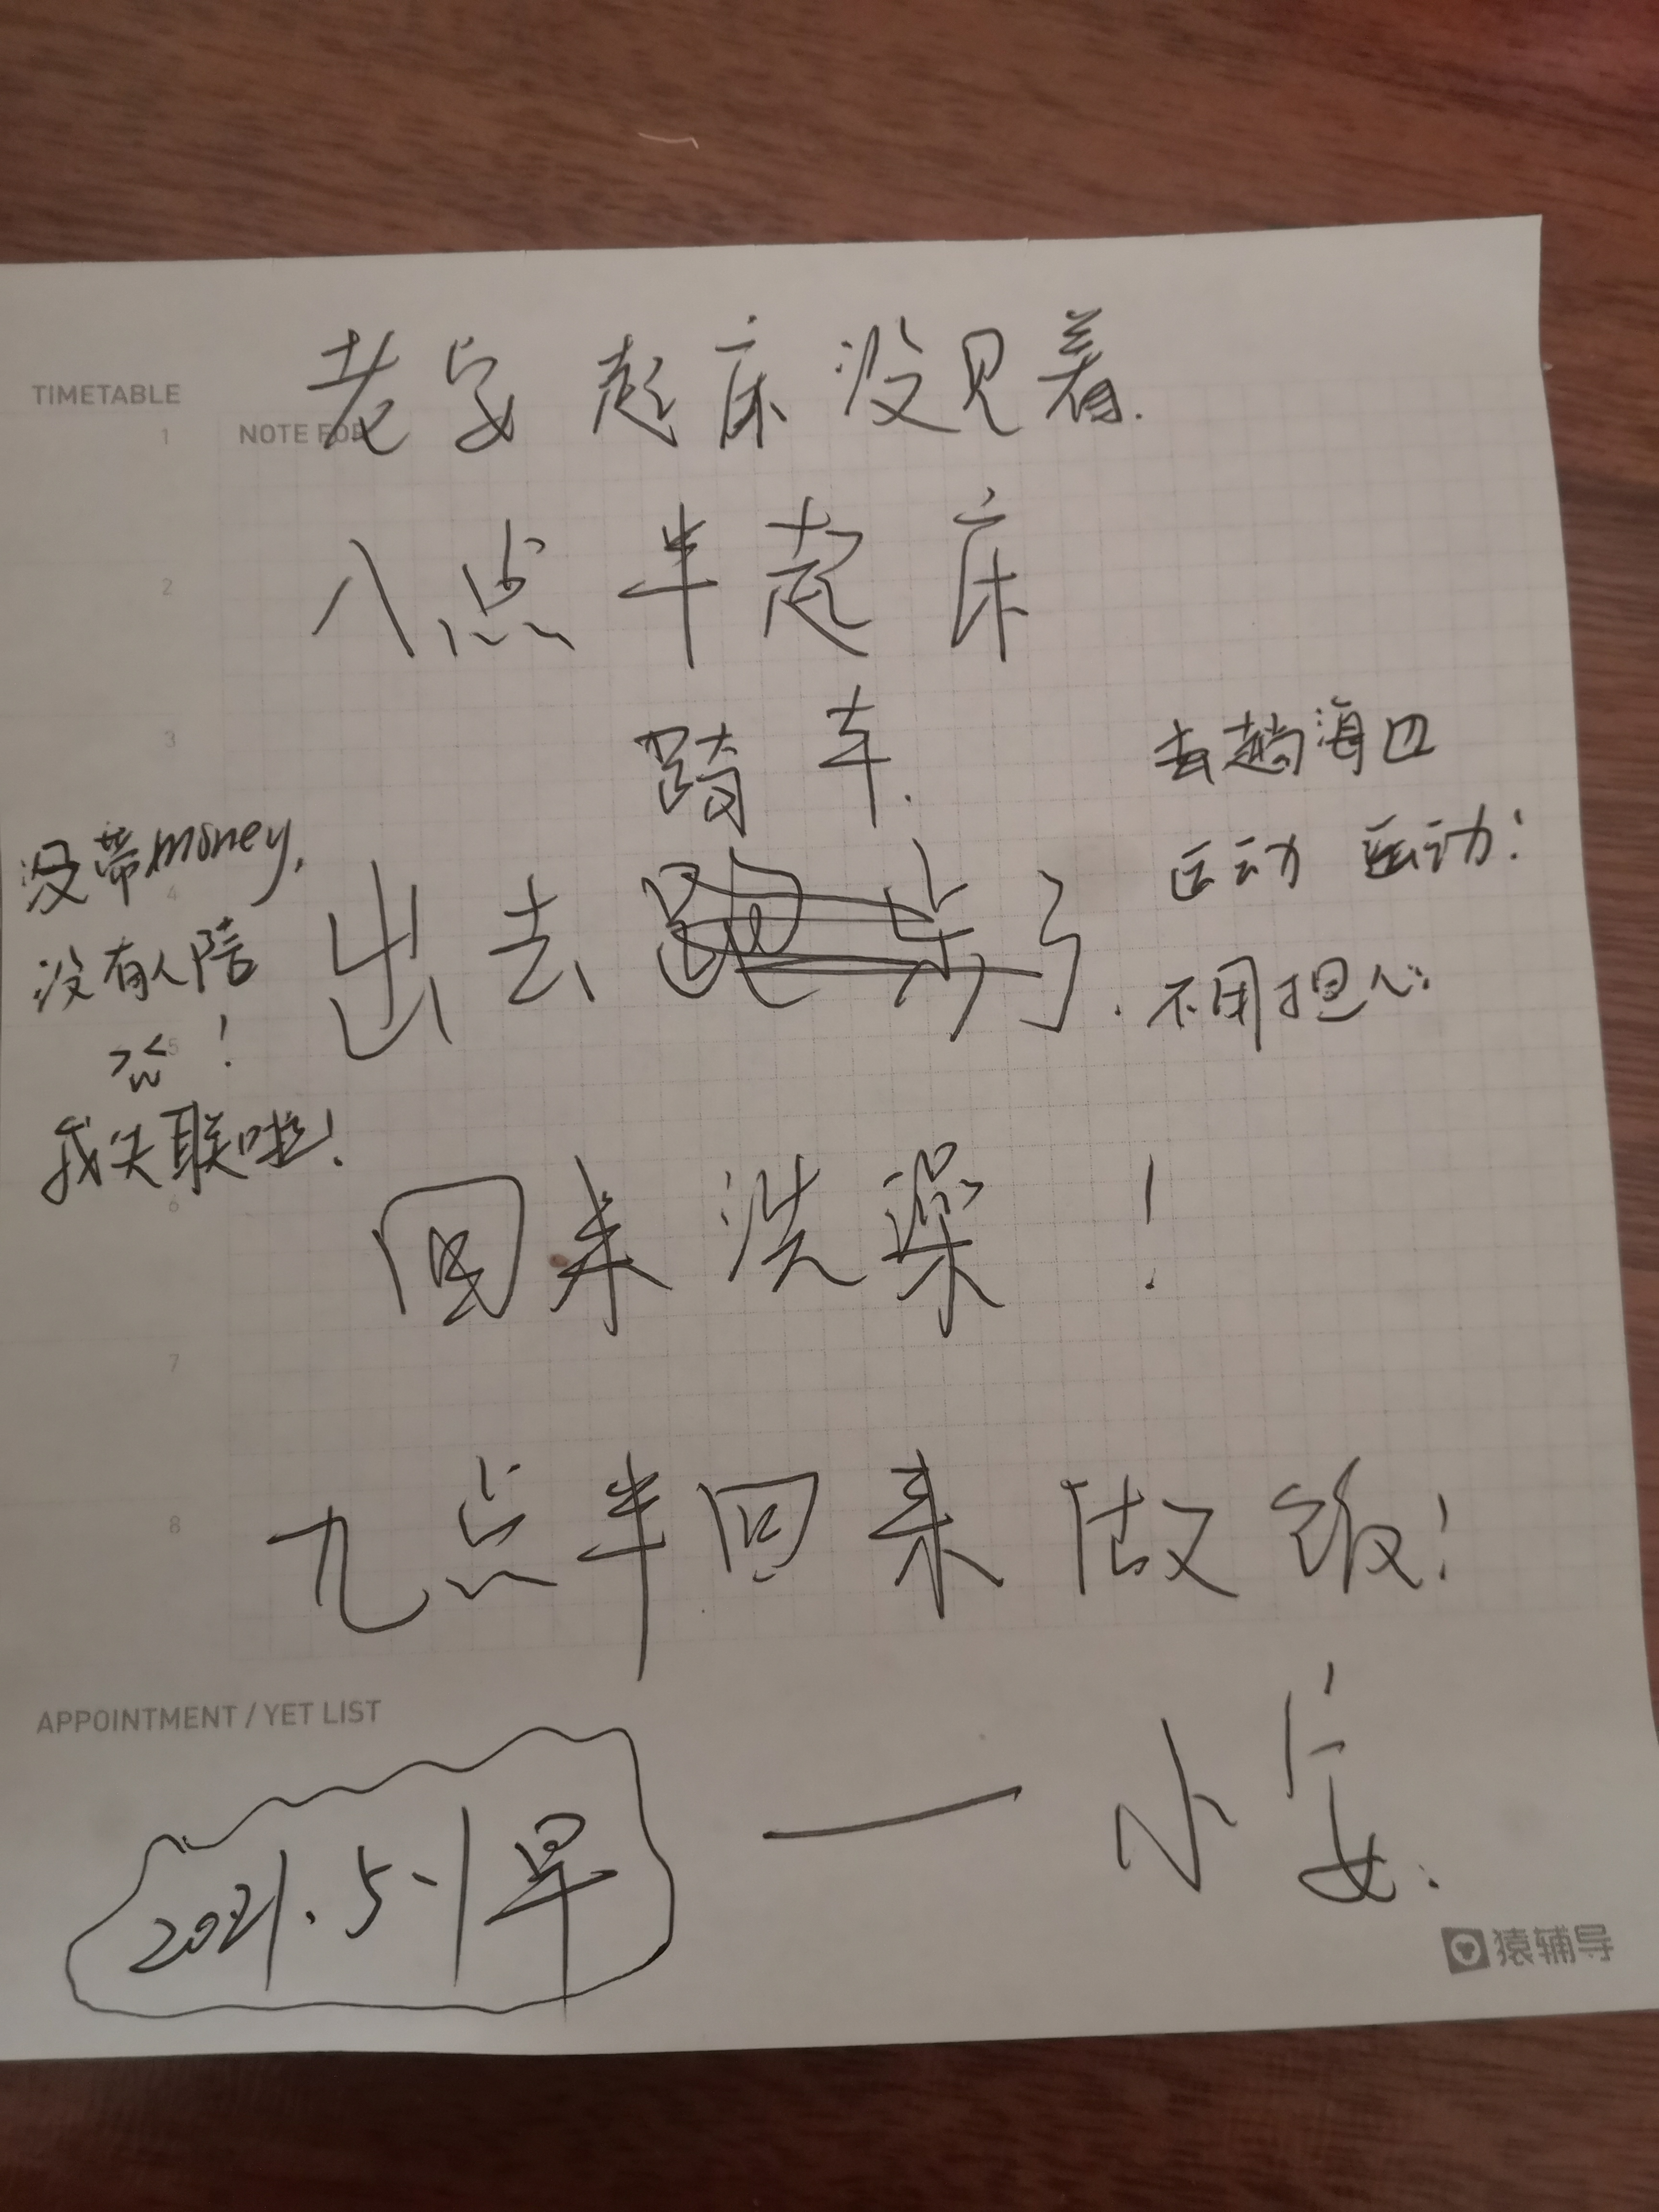 TIMETABLE
老安起床没见着.
1 NOTE FOR
2 八点半起床
3 踦车.
去趟海口
没带money,
4 出去跑步了.
运动 运动!
没有人陪
不用担心
5 !
我失联啦!
6 回来洗澡!
7
8 九点半回来做饭!
APPOINTMENT / YET LIST
2021.5.1早
—— 小安.
猿辅导